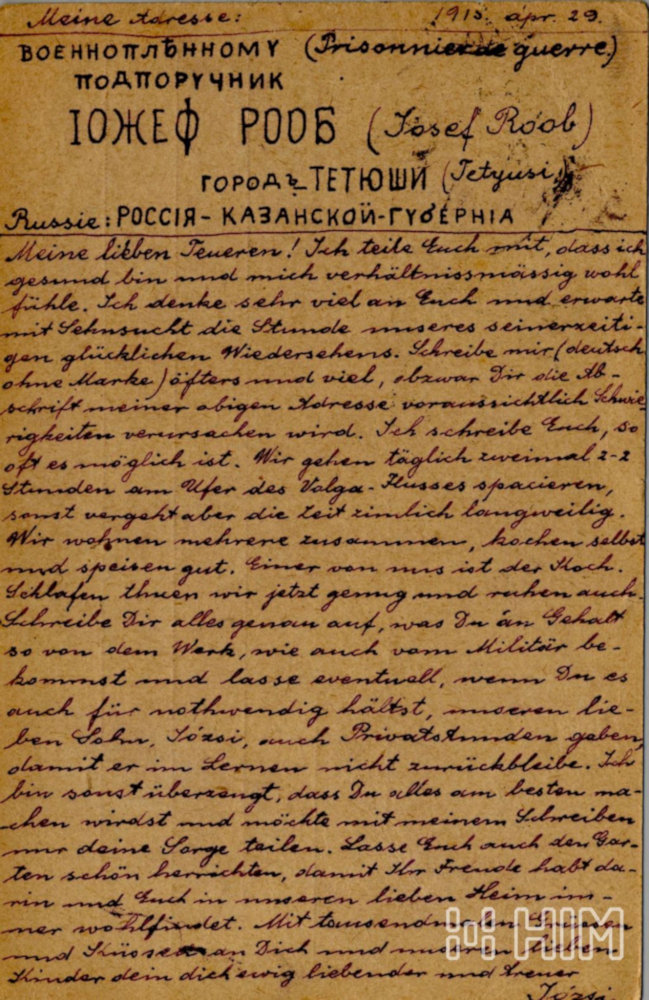 Meine Adresse: 1915. ápr. 29.
ВОЕННОПЛѢННОМУ (Prisonnier de guerre.)
ПОДПОРУЧНИК
ІОЖЕФ РООБ (Josef Roób)
ГОРОДЪ ТЕТЮШИ (Tetyusi)
Russie: РОССІЯ - КАЗАНСКОЙ - ГУБЕРНІА
Meine lieben Teueren! Ich teile Euch mit, dass ich
gesund bin und mich verhältnissmässig wohl
fühle. Ich denke sehr viel an Euch und erwarte
mit Sehnsucht die Stunde unseres seinerzeiti-
gen glücklichen Wiedersehens. Schreibe mir (deutsch
ohne Marke) öfters und viel, obzwar Dir die Ab-
schrift meiner obigen Adresse voraussichtlich Schwie-
rigkeiten verursachen wird. Ich schreibe Euch, so
oft es möglich ist. Wir gehen täglich zweimal 2-2
Stunden am Ufer des Volga-Flusses spacieren,
sonst vergeht aber die Zeit zimlich langweilig.
Wir wohnen mehrere zusammen, kochen selbst
und speisen gut. Einer von uns ist der Koch.
Schlafen thuen wir jetzt genug und ruhen auch.
Schreibe Dir alles genau auf, was Du an Gehalt
so von dem Werk, wie auch vom Militär be-
kommst und lasse eventuell, wenn Du es
auch für nothwendig hältst, unseren lie-
ben Sohn, Józsi, auch Privatstunden geben,
damit er im Lernen nicht zurückbleibe. Ich
bin sonst überzeugt, dass Du alles am besten ma-
chen wirdst und möchte mit meinem Schreiben
nur deine Sorge teilen. Lasse Euch auch den Gar-
ten schön herrichten, damit Ihr Freude habt da-
rin und Euch in unseren lieben Heim im-
mer wohlfindet. Mit tausendmalen Grüssen
und Küssen an Dich und unseren lieben
Kinder dein dich ewig liebender und treuer
Józsi
HIM